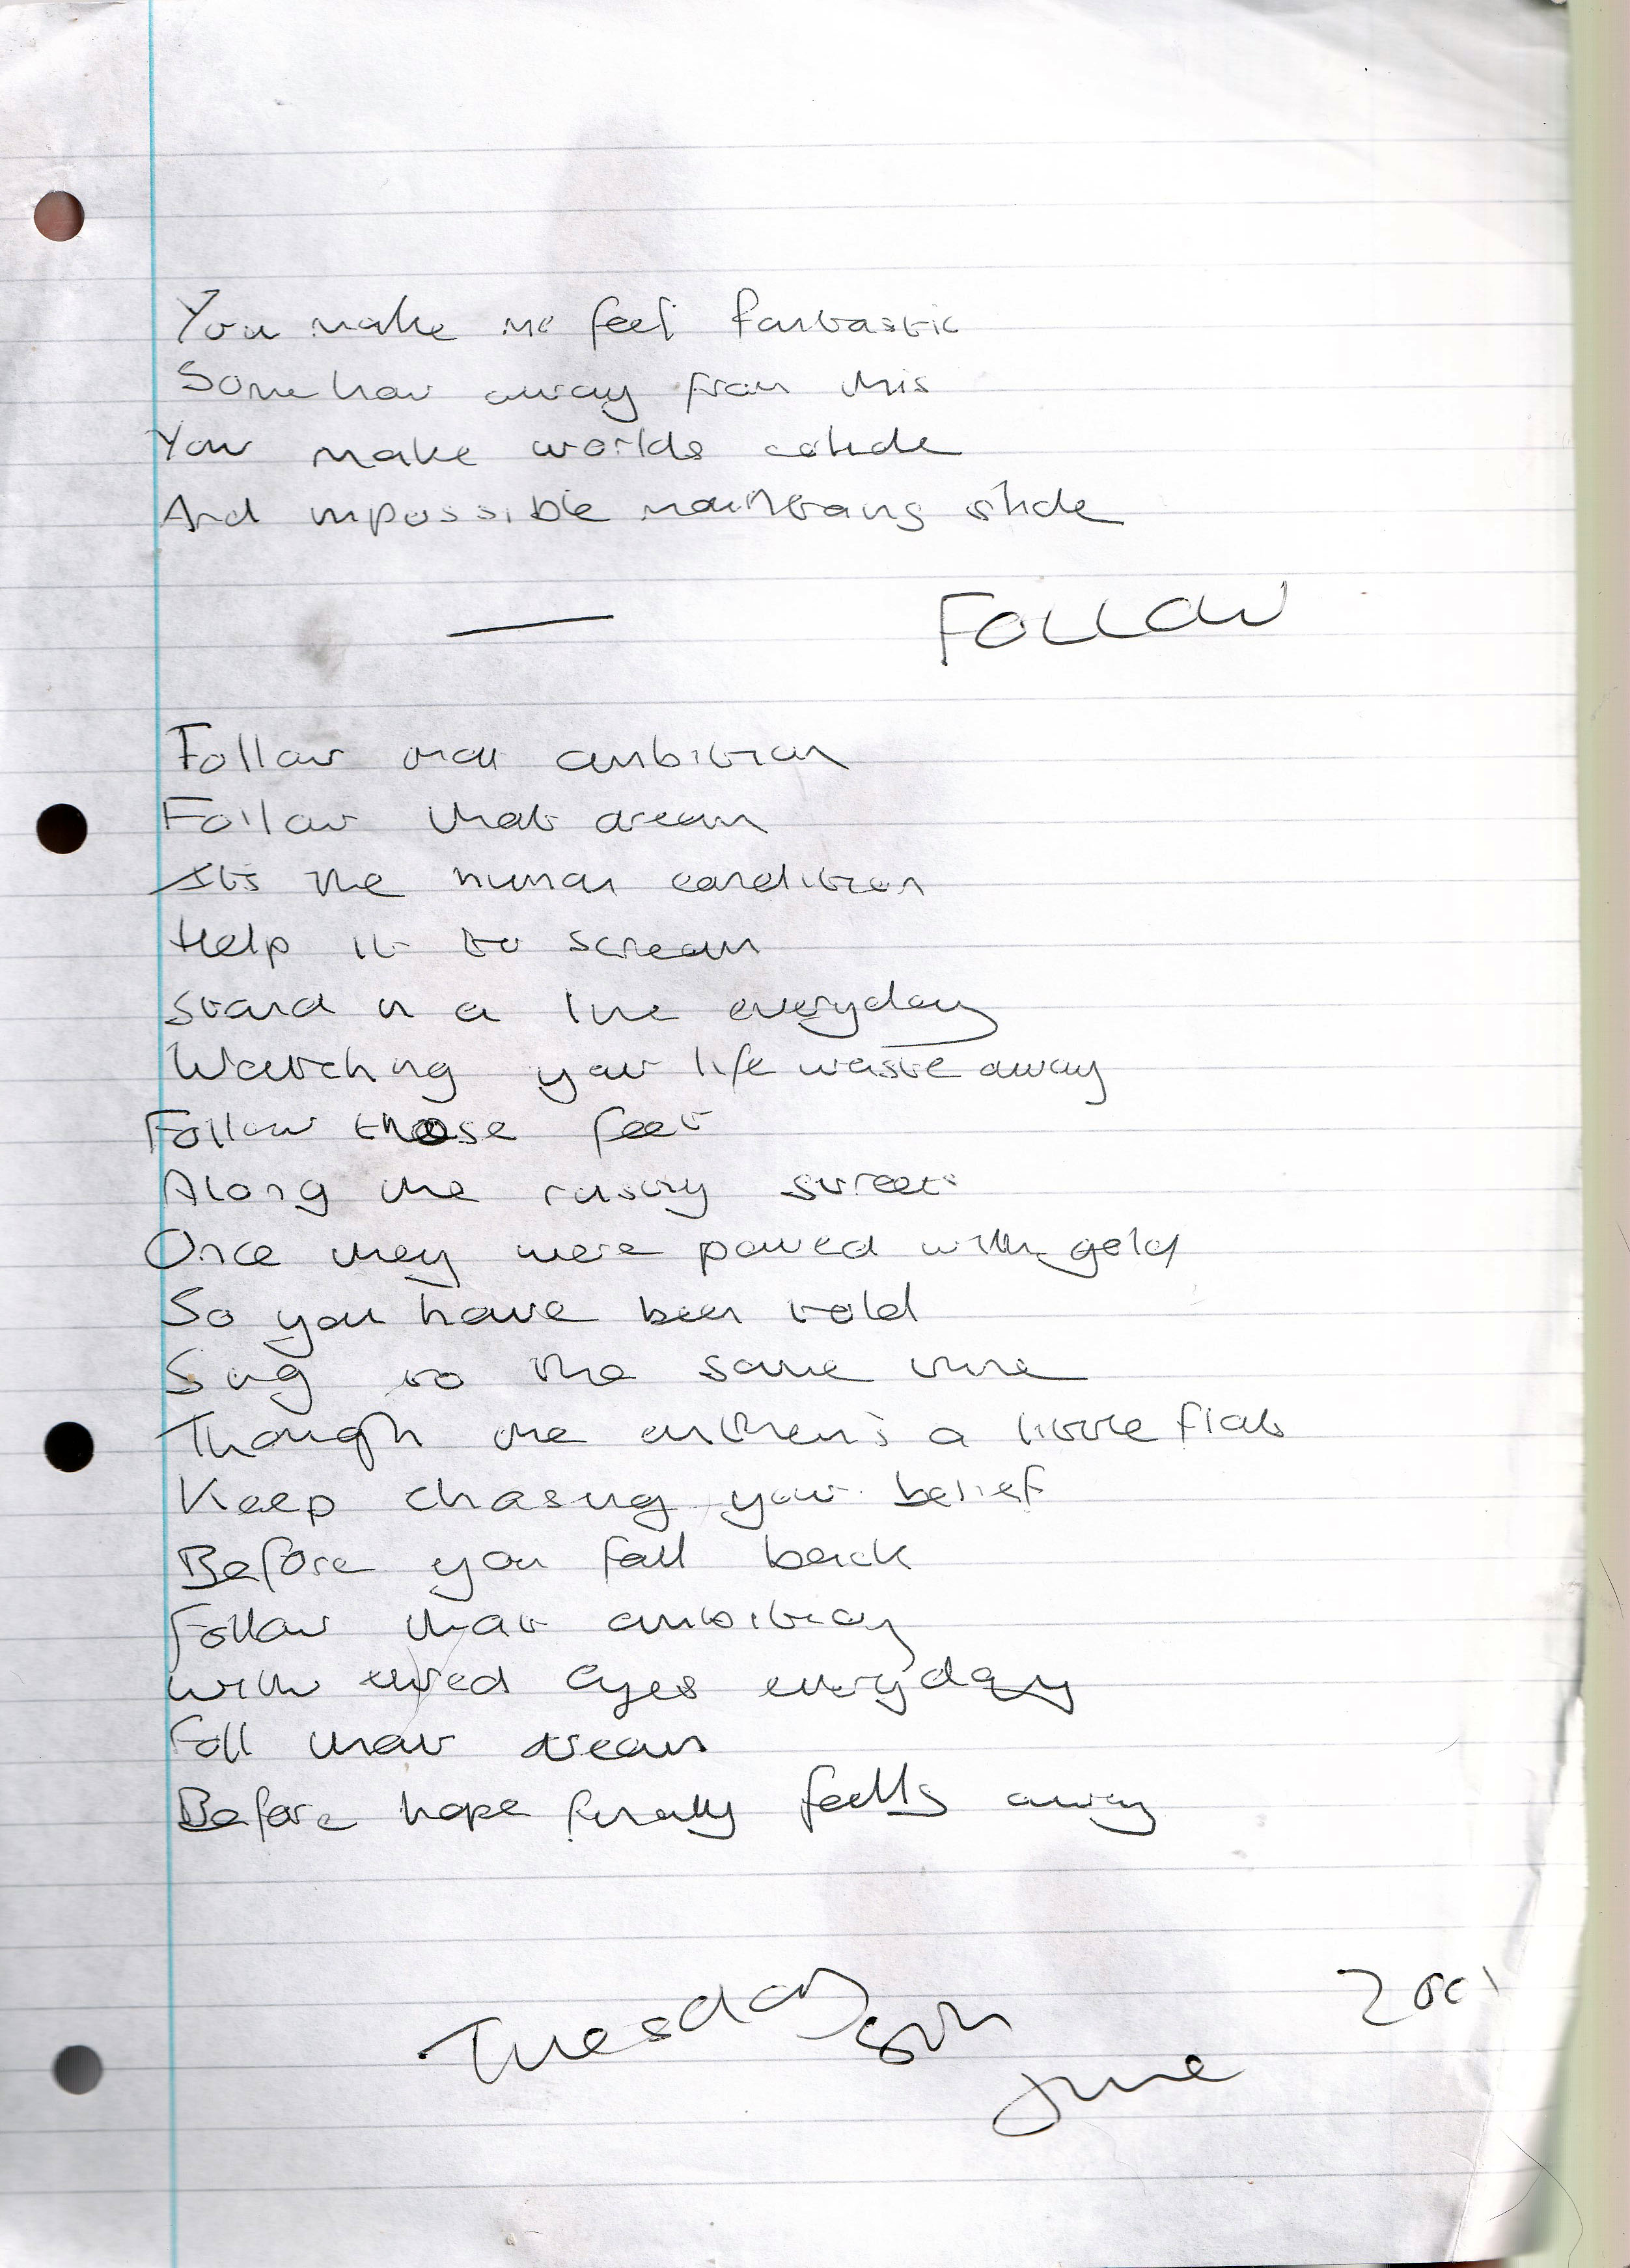 You make me feel fantastic
Somehow away from this
You make worlds collide
And impossible mountains slide
FOLLOW
Follow that ambition
Follow that dream
Its the human condition
Help it to scream
Stand in a line everyday
Watching your life waste away
Follow those feet
Along the rusty streets
Once they were paved with gold
So you have been told
Sing to the same tune
Though the anthem's a little flat
Keep chasing your belief
Before you fall back
Follow that ambition
With tired eyes everyday
Foll that dream
Before hope finally falls away
Tuesday 5th June 2001